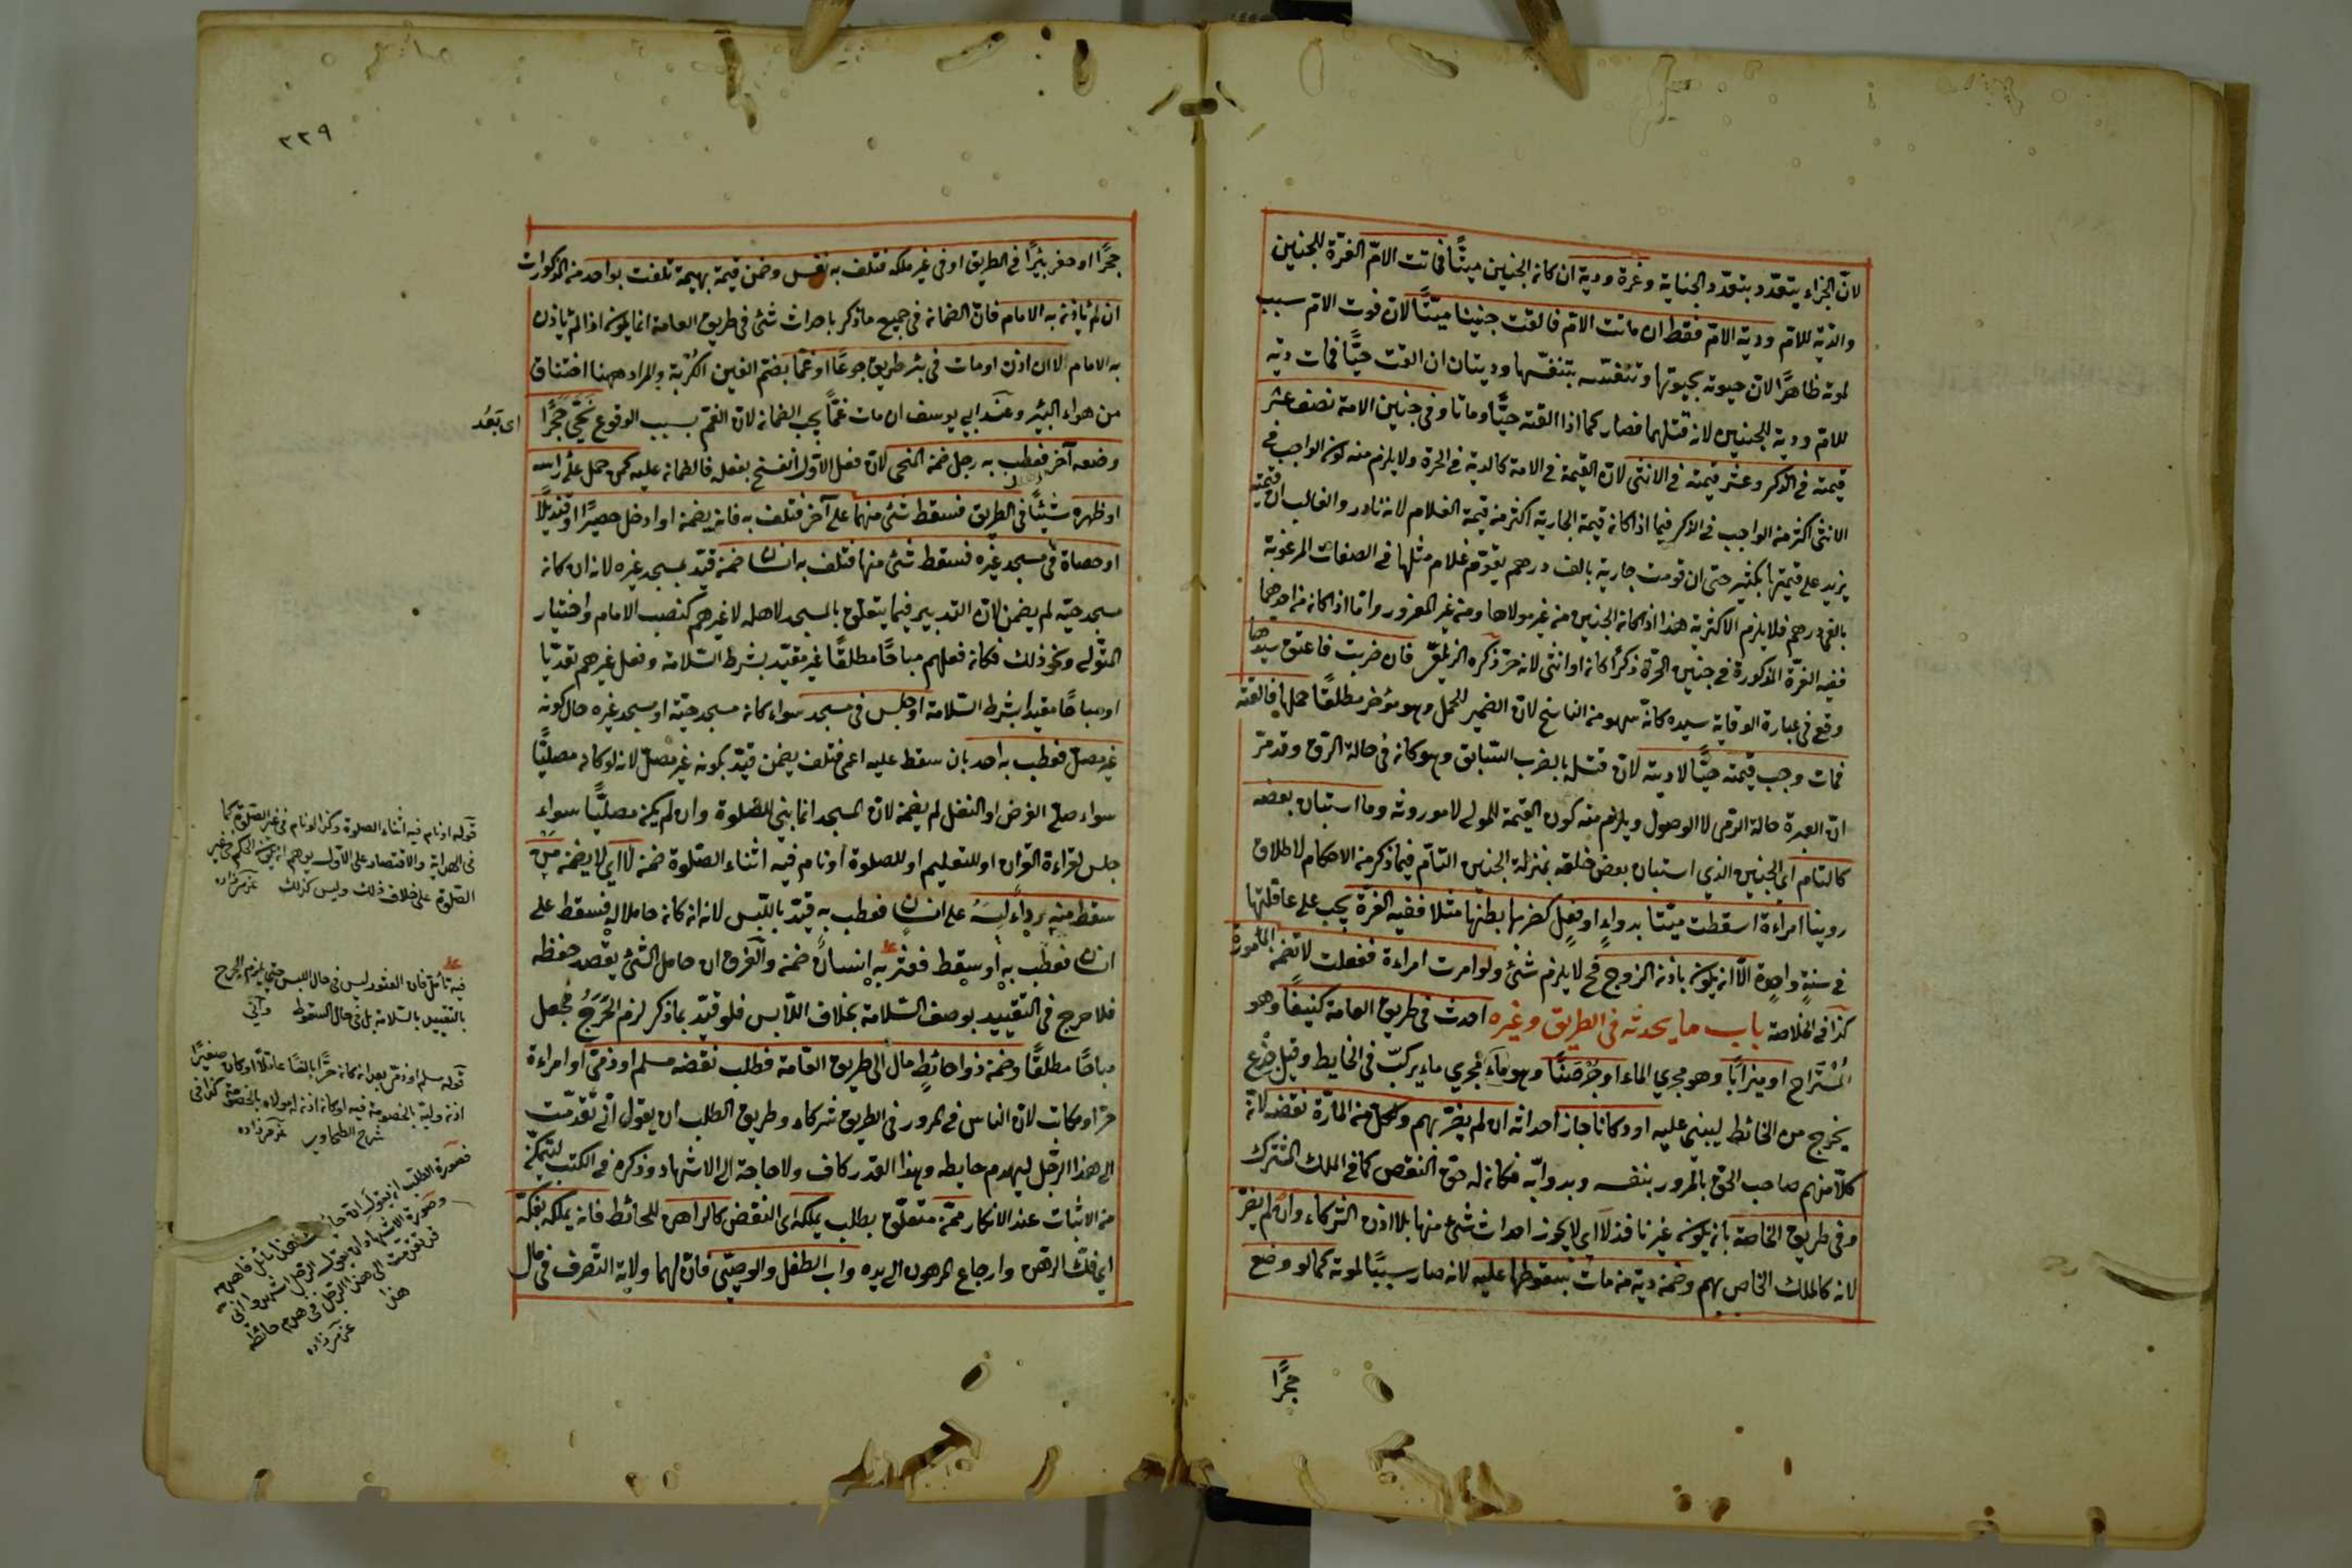 لانّ الجزاء يتعدّد بتعدّد الجناية وغرة ودية ان كانه الجنين ميتًا فماتت الامّ الغرّة للجنين
والدّية للامّ ودية الامّ فقط ان ماتت الامّ فالقت جنينا ميتًا لانّ فوت الامّ سبب
لموته ظاهرًا لانّ حيوته بحيوتها وتنفّسه بتنفّسها وديتان ان القت حيًّا فمات دية
للامّ ودية للجنين لانه قتلهما فصار كما اذا القته حيًّا وماتا وفي جنين الامة نصف عشر
قيمته في الذكر وعشر قيمته في الانثى لانّ القيمة في الامة كالدية في الحرة ولا يلزم منه كون الواجب في
الانثى اكثر منه الواجب في الذكر فيما اذا كانه قيمة الجارية اكثر منه قيمة الغلام لانه نادر والغالب ان قيمته
يزيد على قيمتها بكثير حتى ان قومت جارية بالف درهم يقوّم غلام مثلها في الصفات المرغوبة
بالفي درهم فلا يلزم الاكثرية هذا اذا كانه الجنين منه غير مولاها ومنه غير المغرور وامّا اذا كانه منه احدهما
ففيه الغرّة المذكورة في جنين الحرّة ذكرًا كانه او انثى لانه حرّ ذكره الزيلعي فان ضربت فاعتق سيدها
وقع في عبارة الوقاية سيده كانّه سهو منه الناسخ لانّ الضمير للحمل وهو مؤخر مطلقًا حملها فالقته
فمات وجب قيمته حيًّا لا ديته لانّ قتله بالضرب السّابق وهو كانه في حالة الرّق وقد مرّ
انّ العبرة حالة الرّمي لا الوصول ويلزم منه كون القيمة للمولى لا موروثه وما استبان بعضه
كالتام اي الجنين الذي استبان بعض خلقه بمنزلة الجنين التامّ فيما ذكر منه الاحكام لاطلاق
روينا امراءة اسقطت ميّتا بدواءٍ او فعلٍ كضربها بطنها مثلا ففيه الغرّة يجب على عاقلتها
في سنةٍ واحدة الّا انه يكون باذنه الزوج فح لا يلزم شئ ولو امرت امراءة ففعلت لا تضمنه المأمورة
كذا في الخلاصة باب ما يحدثه في الطريق وغيره احدث في طريق العامة كنيفًا وهو
المُسْتَرَاح او ميزابًا وهو مجري الماء او جُرْصَنًا وهو مجري ماء يركّب في الحايط وقيل جذع
يخرج من الحائط ليبني عليه او دكانا جاز احداثه ان لم يضرّ بهم ولكل منه المارّة نقضه لانّ
كلّا منهم صاحب الحق بالمرور بنفسه وبدوابّه فكانه له حق النقض كما في الملك المشترك
وفي طريق الخاصة بانه يكون غير نافذ لا اي لا يجوز احداث شئ منها بلا اذن الشركاء وان لم يضرّ
لانه كالملك الخاص بهم وضمنه دية منه مات بسقوطها عليه لانه صار سببًا لموته كما لو وضع
حجرًا
٢٢٩
حجرًا او حفر بئرًا في الطريق او في غير ملكه فتلف به نفس وضمن قيمة بهيمة تلفت بواحد منه المذكورات
ان لم ياذنه به الامام فانّ الضمانه في جميع ما ذكر باحداث شئ في طريق العامة انما يكون اذا لم ياذن
به الامام الا ان اذن او مات في بئر طريق جوعًا او غمًّا بضم الغين الكُرْبة والمراد ههنا اختناق
من هواء البئر وعند ابي يوسف ان مات غمًّا يجب الضمانه لانّ الغم بسبب الوقوع نَحّى حَجَرًا
اى بَعَّد
وضعه آخر فعطب به رجل ضمنه المنحى لانّ فعل الاوّل انفسخ بفعله فالضمانه عليه كمن حمل على راسه
او ظهره شيئًا في الطريق فسقط شئ منهما على آخر فتلف به فانه يضمنه او ادخل حصيرًا او قنديلًا
او حصاة في مسجد غيره فسقط شئ منها فتلف به انسان ضمنه قيّد بمسجد غيره لانه ان كانه
مسجد حيّه لم يضمن لانّ التدبير فيما يتعلّق بالمسجد لاهله لا غيرهم كنصب الامام واختيار
المتولي ونحو ذلك فكانه فعلهم مباحًا مطلقًا غير مقيّد بشرط السّلامة وفعل غيرهم تعدّيا
او مباحًا مقيدا بشرط السّلامة او جلس في مسجد سواء كانه مسجد حيّه او مسجد غيره حال كونه
غير مصلّ فعطب به احد بان سقط عليه اعمى فتلف يضمن قيّد بكونه غير مصلّ لانه لو كان مصليًّا
سواء صلّى الفرض او النفل لم يضمنه لانّ المسجد انما بني للصّلوة وان لم يكنه مصليًّا سواء
جلس لقراءة القرآن او للتعليم او للصلوة او نام فيه اثناء الصّلوة ضمنه لا اي لا يضمنه منه
سقط منه رداءٌ لَبِسَهُ على انسان فعطب به قيّد باللّبس لانه انه كانه حاملا له فسقط على
انسان فعطب به او سقط فعثر به انسان ضمنه والفرق ان حامل الشئ يقصد حفظه
فلا حرج في التقييد بوصف السّلامة بخلاف اللّابس فلو قيّد بما ذكر لزم الحَرَجُ فجعل
مباحًا مطلقًا وضمنه ذو احائطٍ مال الى طريق العامّة فطلب نقضه مسلم او ذمّي او امراءة
حرّ او مكاتب لانّ الناس في المرور في الطريق شركاء وطريق الطلب ان يقول انّي تقدّمت
الى هذا الرّجل ليهدم حايطه وهذا القدر كاف ولا حاجة الى الاشهاد وذكره في الكتب ليتمكّنه
منه الاثبات عند الانكار ممّنه متعلّق بطلب يملكه اى النقض كالراهن للحائط فانه يملكه بفكّه
اي فكّ الرّهن وارجاع المرهون الى يده واب الطفل والوصيّ فانّ لهما ولاية التّصرف في مال
قوله او نام فيه اثناء الصلوة وكذا لو نام في غير الصلوة كما
في الهداية والاقتصار على الاول يوهم انه يكون الحكم في غير
الصّلوة على خلاف ذلك وليس كذلك عزمى زاده
فيه تأمّل فان العثور ليس في حال اللبس حتى يلزم الحرج
بالتقييد بالسّلامة بل في حال السقوط وانّي
قوله مسلم او ذمّي بعد انه كانه حرًّا بالغًا عاقلًا او كان صغيرًا
اذنه وليّه بالخصومة فيه او كانه اذنه له مولاه بالخصومة كذا في
شرح الطحاوي عزمى زاده
فصورة الطلب ان يقول انّ حائطك هذا مائل فاهدمه
وصورة الاشهاد ان يقول الرجل اشهدوا انّي
قد تقدّمت الى هذا الرّجل في هدم حائطه
هذا
عزمى زاده